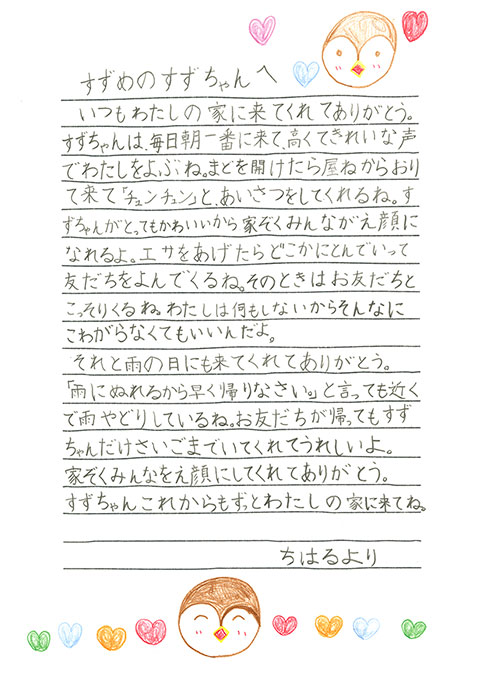 すずめのすずちゃんへ
いつもわたしの家に来てくれてありがとう。
すずちゃんは、毎日朝一番に来て、高くてきれいな声
でわたしをよぶね。まどを開けたら屋ねからおり
て来て「チュンチュン」と、あいさつをしてくれるね。す
ずちゃんがとってもかわいいから家ぞくみんながえ顔に
なれるよ。エサをあげたらどこかにとんでいって
友だちをよんでくるね。そのときはお友だちと
こっそりくるね。わたしは何もしないからそんなに
こわがらなくてもいいんだよ。
それと雨の日にも来てくれてありがとう。
「雨にぬれるから早く帰りなさい。」と言っても近く
で雨やどりしているね。お友だちが帰ってもすず
ちゃんだけさいごまでいてくれてうれしいよ。
家ぞくみんなをえ顔にしてくれてありがとう。
すずちゃんこれからもずっとわたしの家に来てね。
ちはるより